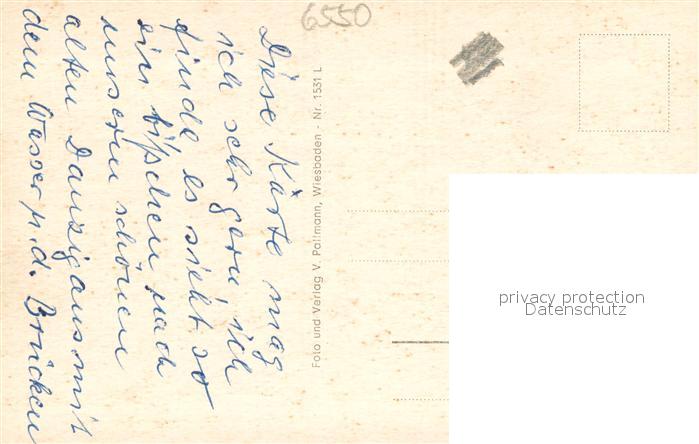 6550
Diese Karte mag
ich sehr gern, ich
finde es sieht so
ein bißchen nach
unserm schönen
alten Danzig aus mit
dem Wasser u. d. Brücken
Foto und Verlag V. Pallmann, Wiesbaden - Nr. 1531 L
privacy protection
Datenschutz